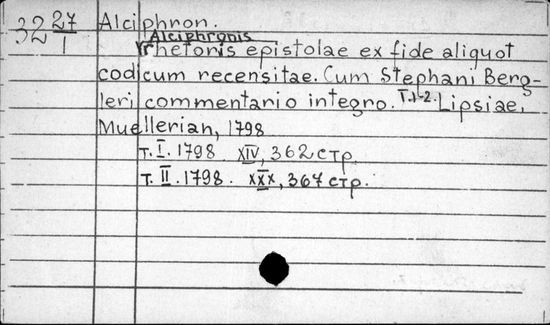 32 27/1 Alciphron.
Alciphronis
rhetoris epistolae ex fide aliquot
codicum recensitae. Cum Stephani Berg-
leri commentario integro. T.1-2. Lipsiae,
Muellerian, 1798
т. I. 1798 XIV, 362 стр.
т. II. 1798. XXX, 367 стр.